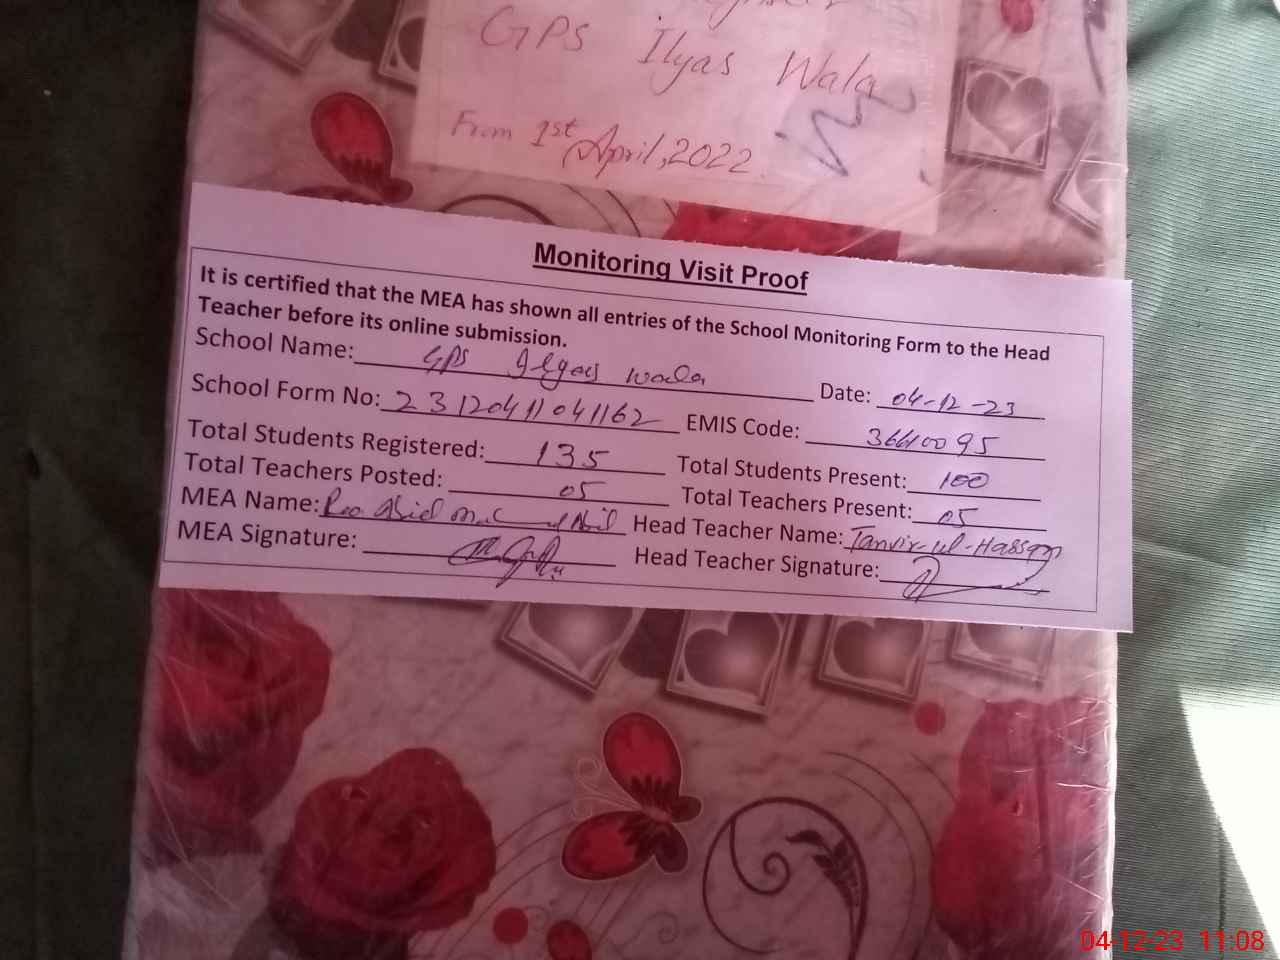 GPS Ilyas Wala
From 1st April, 2022.
Monitoring Visit Proof
It is certified that the MEA has shown all entries of the School Monitoring Form to the Head
Teacher before its online submission.
School Name: GPS Ilyas wala Date: 04-12-23
School Form No: 23120411041162 EMIS Code: 36610095
Total Students Registered: 135 Total Students Present: 100
Total Teachers Posted: 05 Total Teachers Present: 05
MEA Name: Rao Abid Head Teacher Name: Tanvir-ul-Hassan
MEA Signature: Head Teacher Signature:
04-12-23 11:08